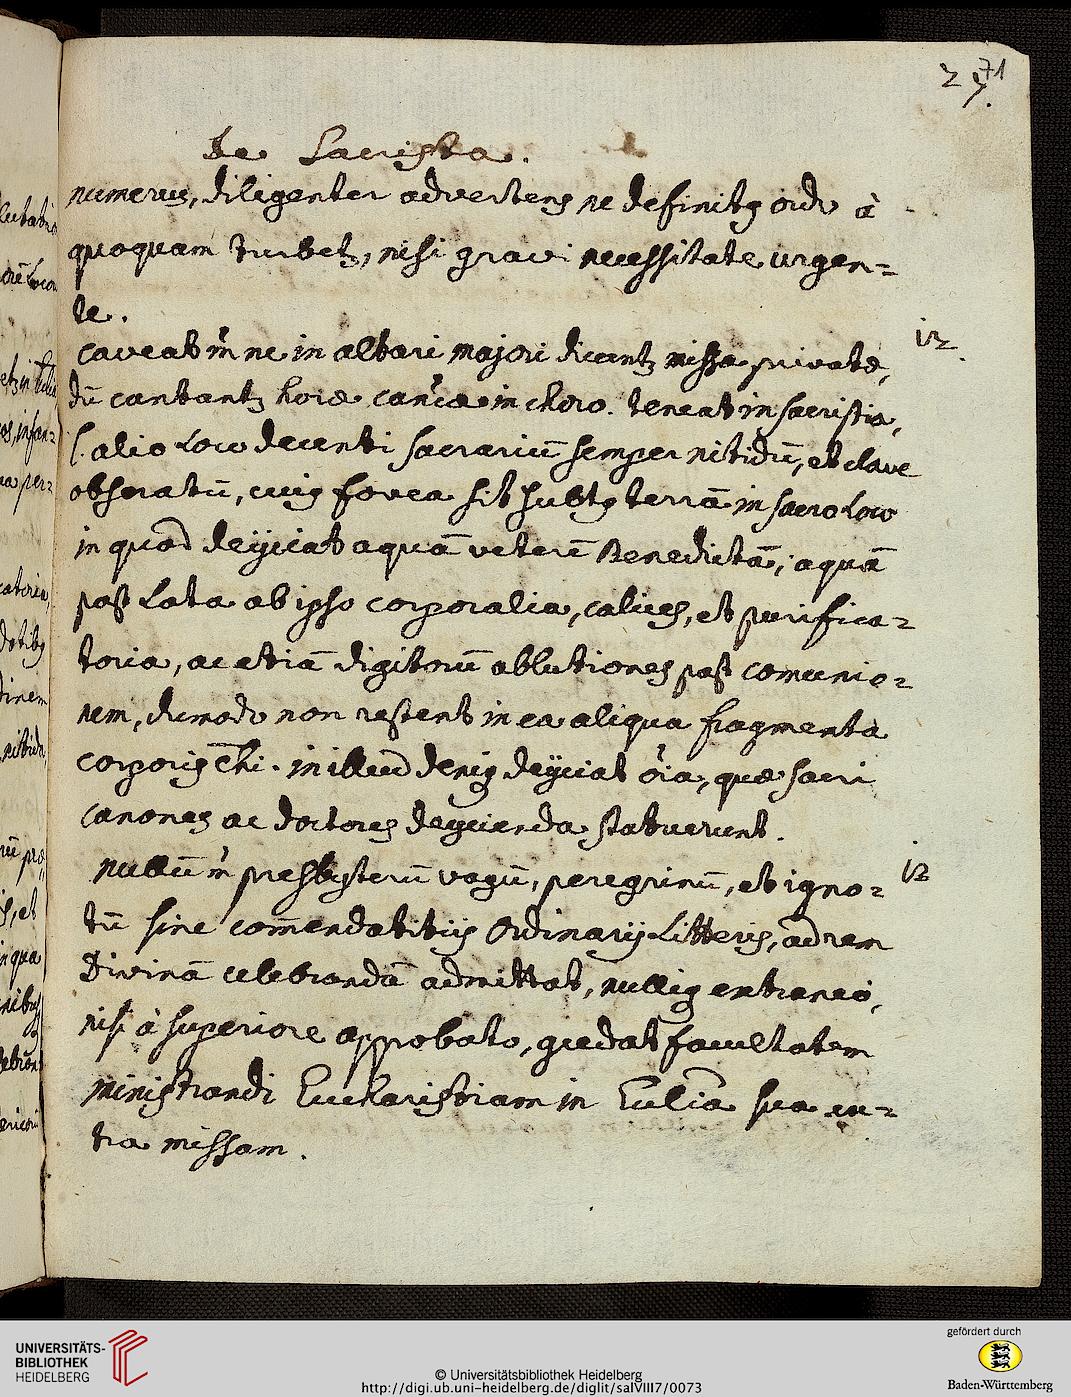 71
27.
De Sacrista.
numerus, diligenter advertens ne definitꝫ ordo à
quoquam turbetꝫ, nisi gravi necessitate urgen=
te.
caveat tn̄ ne in altari majori dicantꝫ missæ privatæ,
dū cantantꝫ horæ canc̄æ in choro. teneat in sacristia,
l. alio loco decenti sacrariū semper nitidū, et clave
obseratū, cuiꝫ fovea sit subtꝫ terrā in sacro loco
in quod dejiciat aquā veterē Benedictā, aquā
post Lota ab ipso corporalia, calices, et purifica=
toria, ac etiā digitorū ablutiones post comunio=
nem, dumodo non restent in ea aliqua fragmenta
corporis Chī. in illud deniꝫ dejiciat oīa, quæ sacri
canones ac doctores dejicienda statuerunt.
12.
nullū tn̄ presbyterū vagū, peregrinū, et igno=
tū sine com̄endatitijs Ordinarij Litteris, ad rem
Divinā celebrandā admittat, nulliꝫ extraneo,
nisi à superiore approbato, credat facultatem
ministrandi Eucharistiam in Eccliā sua ex=
tra missam.
13
UNIVERSITÄTS-
BIBLIOTHEK
HEIDELBERG
© Universitätsbibliothek Heidelberg
http://digi.ub.uni-heidelberg.de/diglit/salVIII7/0073
gefördert durch
Baden-Württemberg